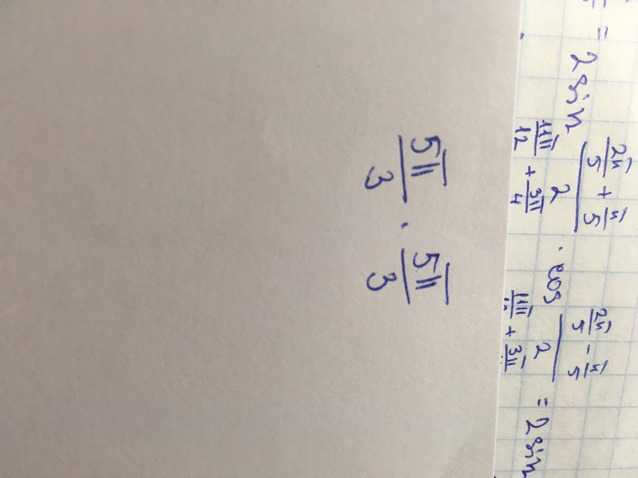 = 2 sin (2π/5 + π/5)/2 · cos (2π/5 − π/5)/2 = 2 sin
11π/12 + 3π/4
+ 3π
5π/3 · 5π/3